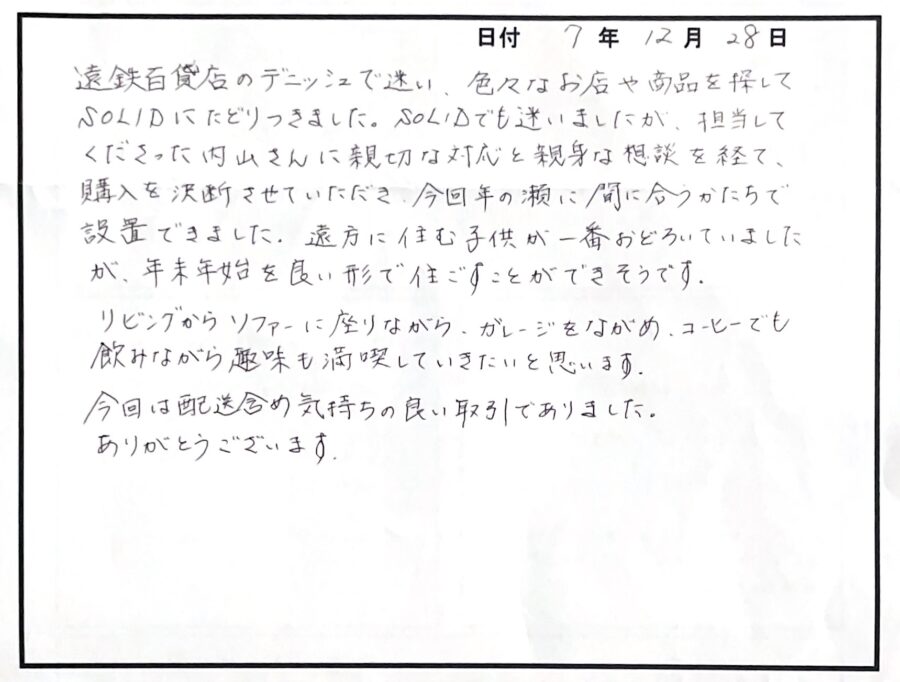 日付 7年 12月 28日
遠鉄百貨店のデニッシュで迷い、色々なお店や商品を探して
SOLIDにたどりつきました。SOLIDでも迷いましたが、担当して
くださった内山さんに親切な対応と親身な相談を経て、
購入を決断させていただき、今回年の瀬に間に合うかたちで
設置できました。遠方に住む子供が一番おどろいていました
が、年末年始を良い形で住ごすことができそうです。
リビングからソファーに座りながら、ガレージをながめ、コーヒーでも
飲みながら趣味も満喫していきたいと思います。
今回は配送含め気持ちの良い取引でありました。
ありがとうございます。